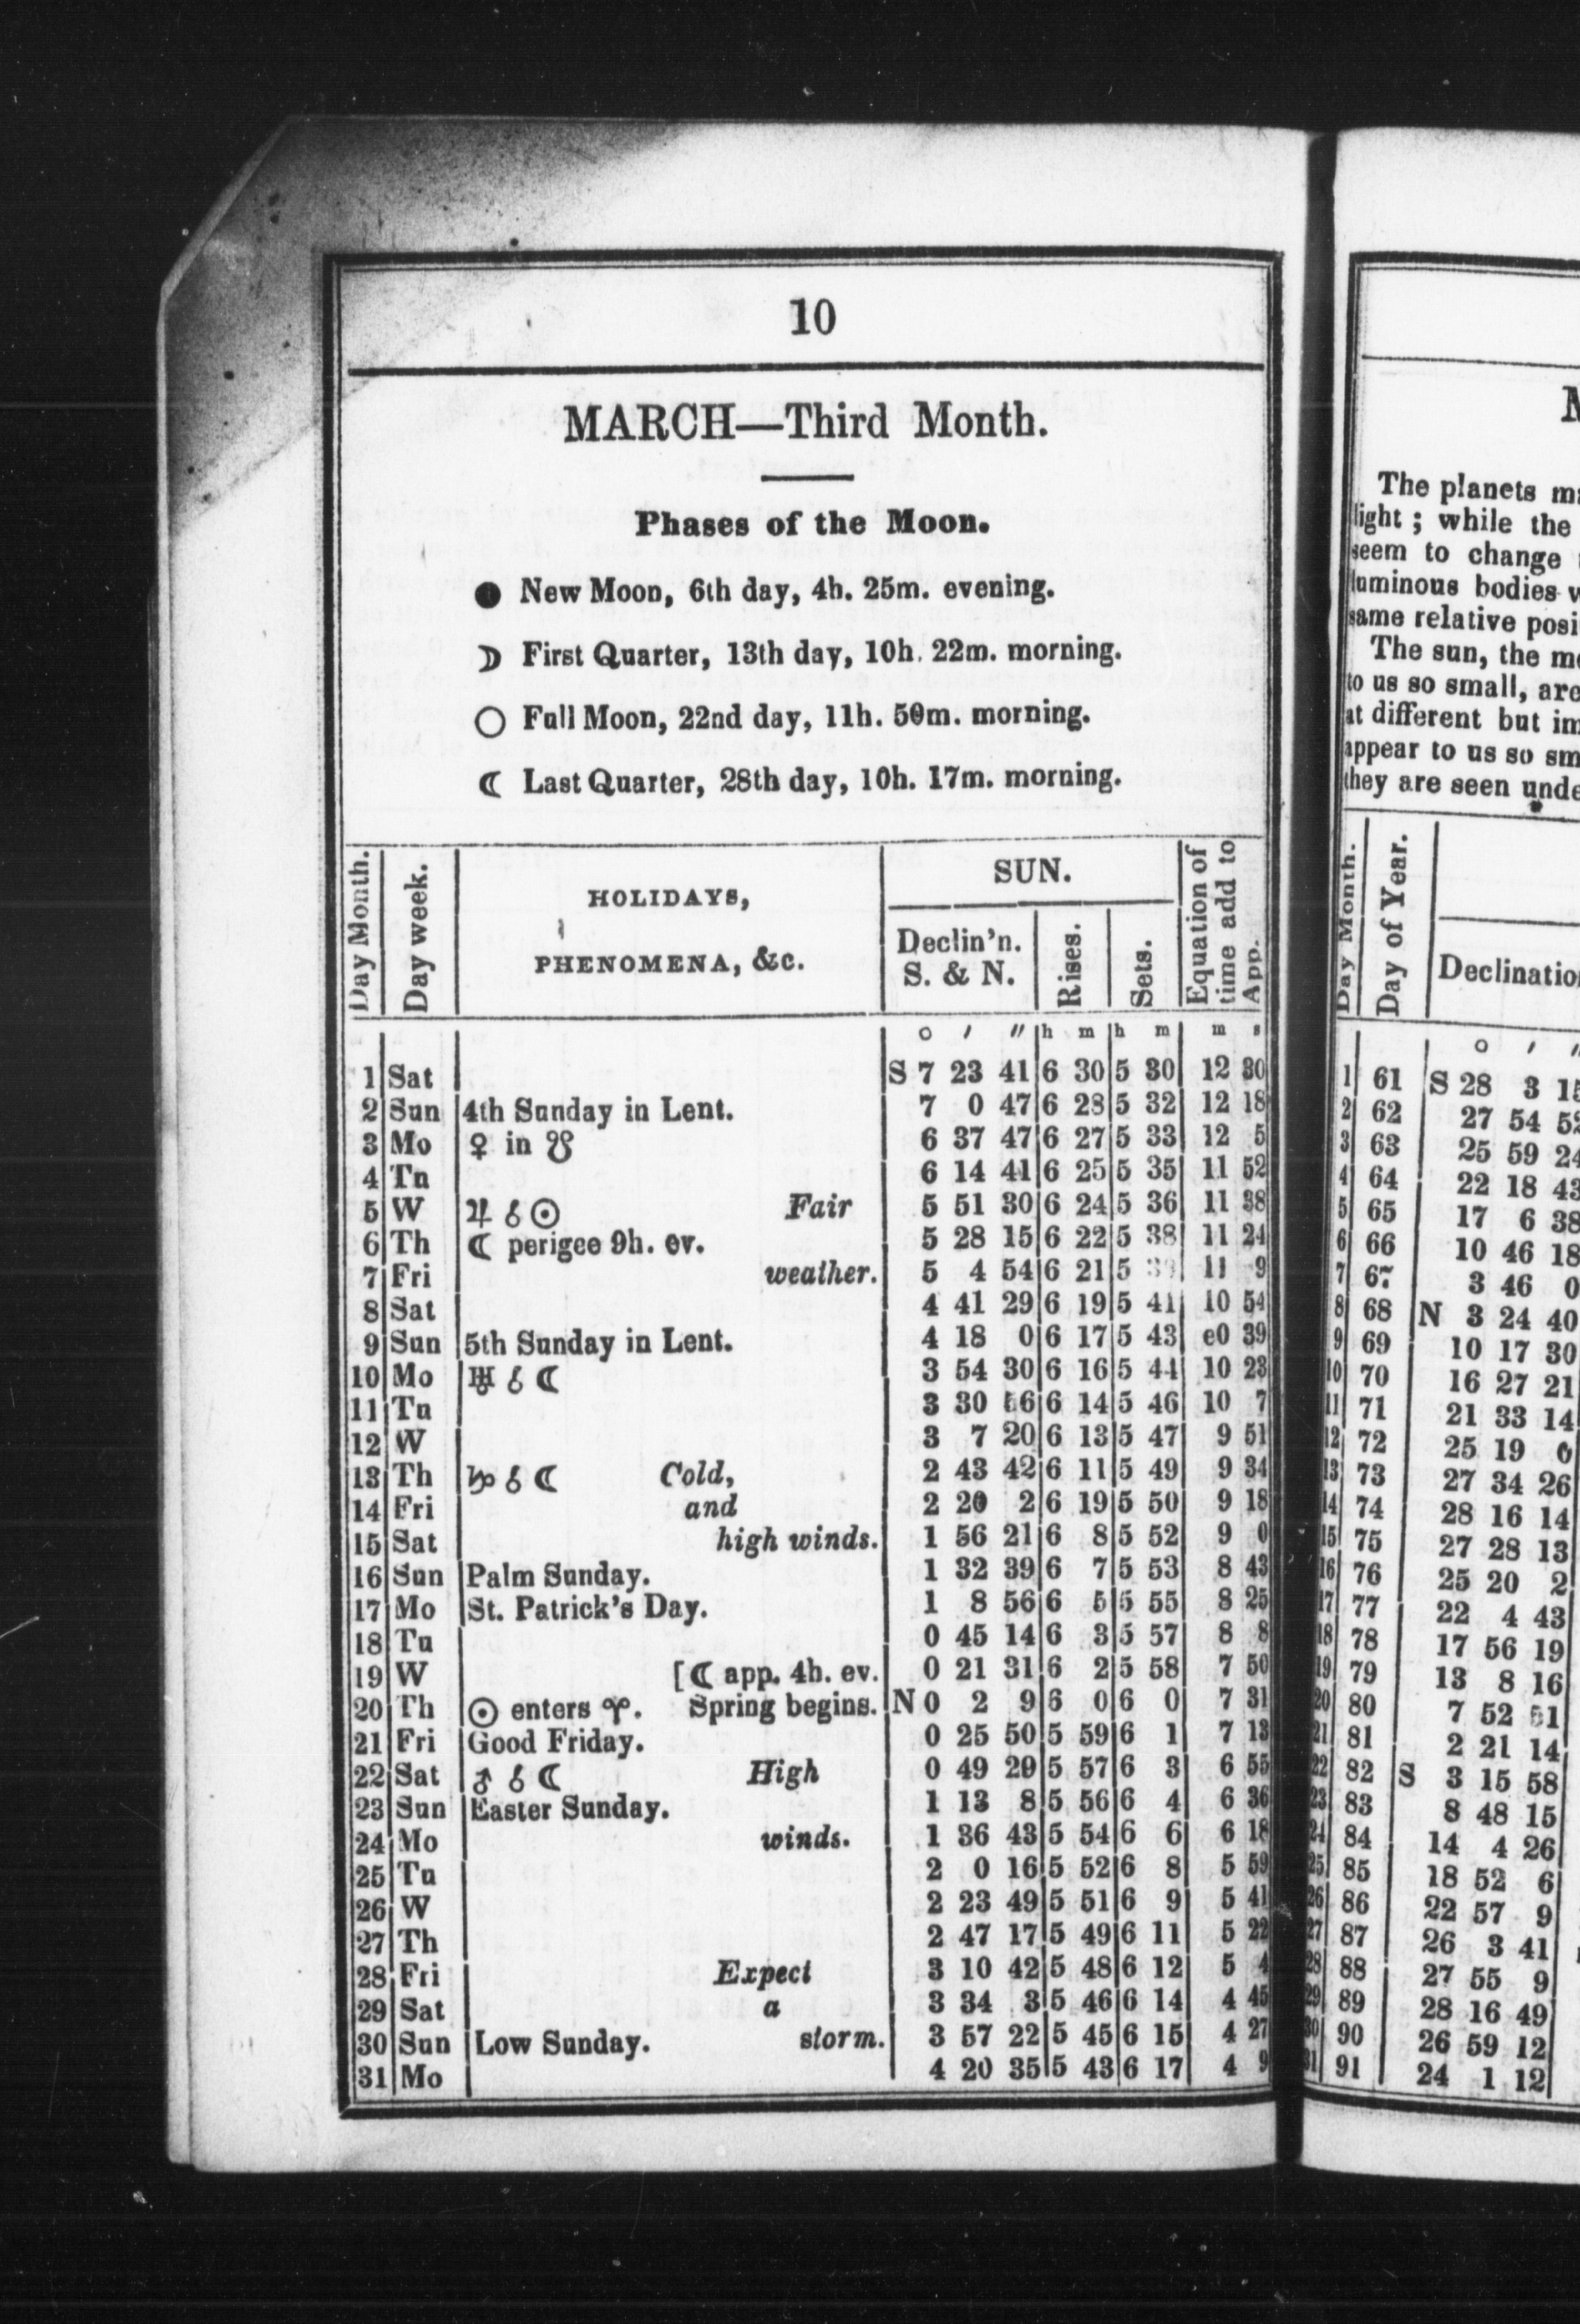 10
MARCH—Third Month.
Phases of the Moon.
● New Moon, 6th day, 4h. 25m. evening.
☽ First Quarter, 13th day, 10h. 22m. morning.
○ Full Moon, 22nd day, 11h. 50m. morning.
☾ Last Quarter, 28th day, 10h. 17m. morning.
Day Month. Day week. HOLIDAYS, PHENOMENA, &c. SUN. Declin'n. S. & N. Rises. Sets. Equation of time add to App.
o ′ ″ h m h m m s
1 Sat S 7 23 41 6 30 5 30 12 30
2 Sun 4th Sunday in Lent. 7 0 47 6 28 5 32 12 18
3 Mo ♀ in ☋ 6 37 47 6 27 5 33 12 5
4 Tu 6 14 41 6 25 5 35 11 52
5 W ♃ ☌ ☉ Fair 5 51 30 6 24 5 36 11 38
6 Th ☾ perigee 9h. ev. 5 28 15 6 22 5 38 11 24
7 Fri weather. 5 4 54 6 21 5 39 11 9
8 Sat 4 41 29 6 19 5 41 10 54
9 Sun 5th Sunday in Lent. 4 18 0 6 17 5 43 e0 39
10 Mo ♅ ☌ ☾ 3 54 30 6 16 5 44 10 23
11 Tu 3 30 56 6 14 5 46 10 7
12 W 3 7 20 6 13 5 47 9 51
13 Th ♑ ☌ ☾ Cold, 2 43 42 6 11 5 49 9 34
14 Fri and 2 20 2 6 19 5 50 9 18
15 Sat high winds. 1 56 21 6 8 5 52 9 0
16 Sun Palm Sunday. 1 32 39 6 7 5 53 8 43
17 Mo St. Patrick's Day. 1 8 56 6 5 5 55 8 25
18 Tu 0 45 14 6 3 5 57 8 8
19 W [☾ app. 4h. ev. 0 21 31 6 2 5 58 7 50
20 Th ☉ enters ♈. Spring begins. N 0 2 9 6 0 6 0 7 31
21 Fri Good Friday. 0 25 50 5 59 6 1 7 13
22 Sat ♂ ☌ ☾ High 0 49 29 5 57 6 3 6 55
23 Sun Easter Sunday. 1 13 8 5 56 6 4 6 36
24 Mo winds. 1 36 43 5 54 6 6 6 18
25 Tu 2 0 16 5 52 6 8 5 59
26 W 2 23 49 5 51 6 9 5 41
27 Th 2 47 17 5 49 6 11 5 22
28 Fri Expect 3 10 42 5 48 6 12 5 4
29 Sat a 3 34 3 5 46 6 14 4 45
30 Sun Low Sunday. storm. 3 57 22 5 45 6 15 4 27
31 Mo 4 20 35 5 43 6 17 4 9
The planets
light ; while the
seem to change
luminous bodies
same relative
The sun, the
to us so small, are
at different but
appear to us so
they are seen
Day Month. Day of Year.
o ′ ″
1 61 S 28 3
2 62 27 54
3 63 25 59 24
4 64 22 18 43
5 65 17 6 38
6 66 10 46 18
7 67 3 46 0
8 68 N 3 24 40
9 69 10 17 30
10 70 16 27 21
11 71 21 33 14
12 72 25 19 0
13 73 27 34 26
14 74 28 16 14
15 75 27 28 13
16 76 25 20 2
17 77 22 4 43
18 78 17 56 19
19 79 13 8 16
20 80 7 52 51
21 81 2 21 14
22 82 S 3 15 58
23 83 8 48 15
24 84 14 4 26
25 85 18 52 6
26 86 22 57 9
27 87 26 3 41
28 88 27 55 9
29 89 28 16 49
30 90 26 59 12
31 91 24 1 12